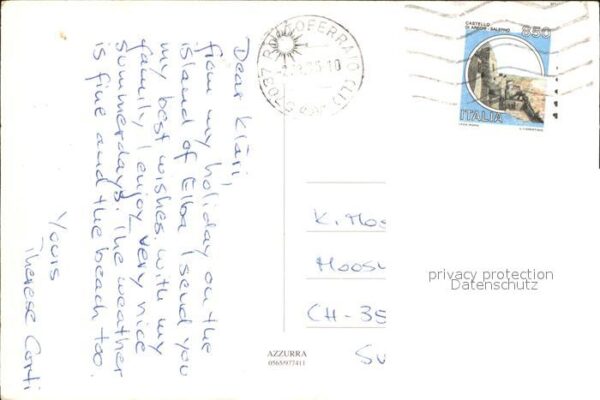 Dear Kläri,
from my holiday on the
island of Elba I send you
my best wishes. with my
family I enjoy very nice
summerdays. The weather
is fine and the beach too.
Yours
Therese Conti
57037 PORTOFERRAIO (LI)
CASTELLO
DI ARECHI SALERNO
850
ITALIA
K. Mos
Moos
CH-35
privacy protection
Datenschutz
AZZURRA
0565/977411